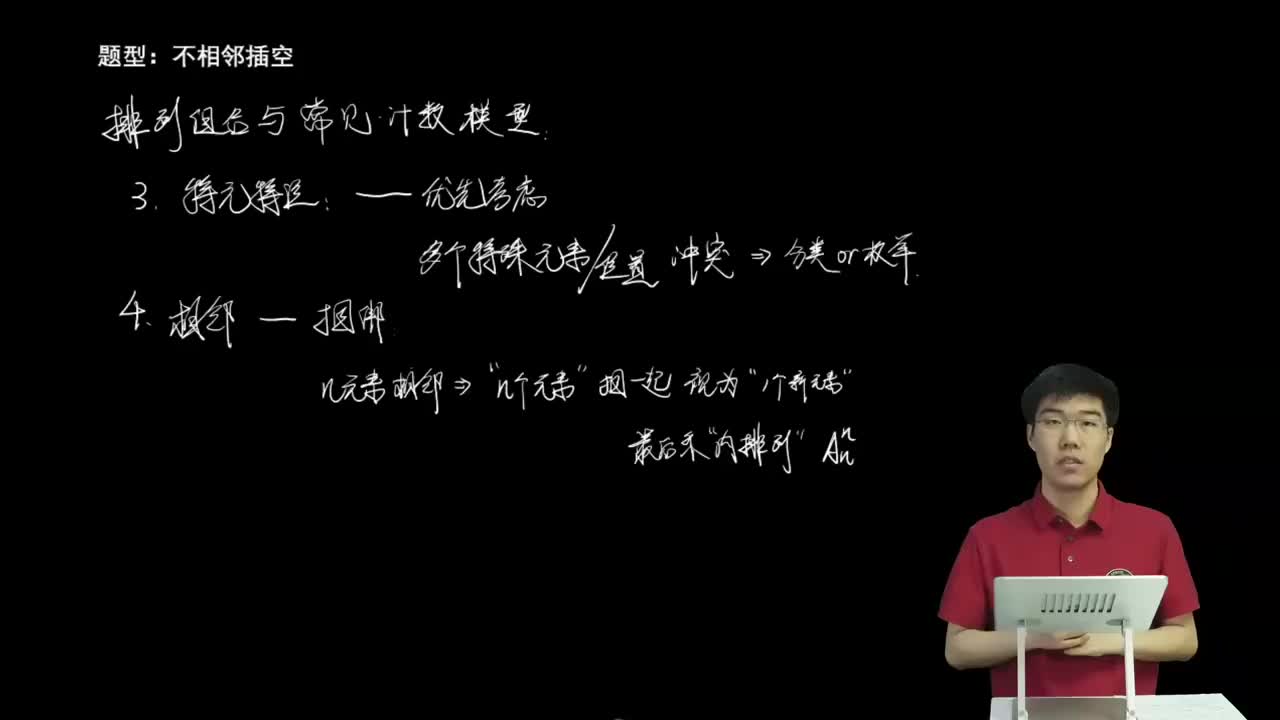 题型：不相邻插空
排列组合与常见计数模型.
3. 特元特位：— 优先考虑
多个特殊元素/位置 冲突 ⇒ 分类 or 枚举.
4. 相邻 — 捆绑.
n元素相邻 ⇒ "n个元素" 捆一起 视为 "1个新元素"
最后乘"内排列" Aₙⁿ